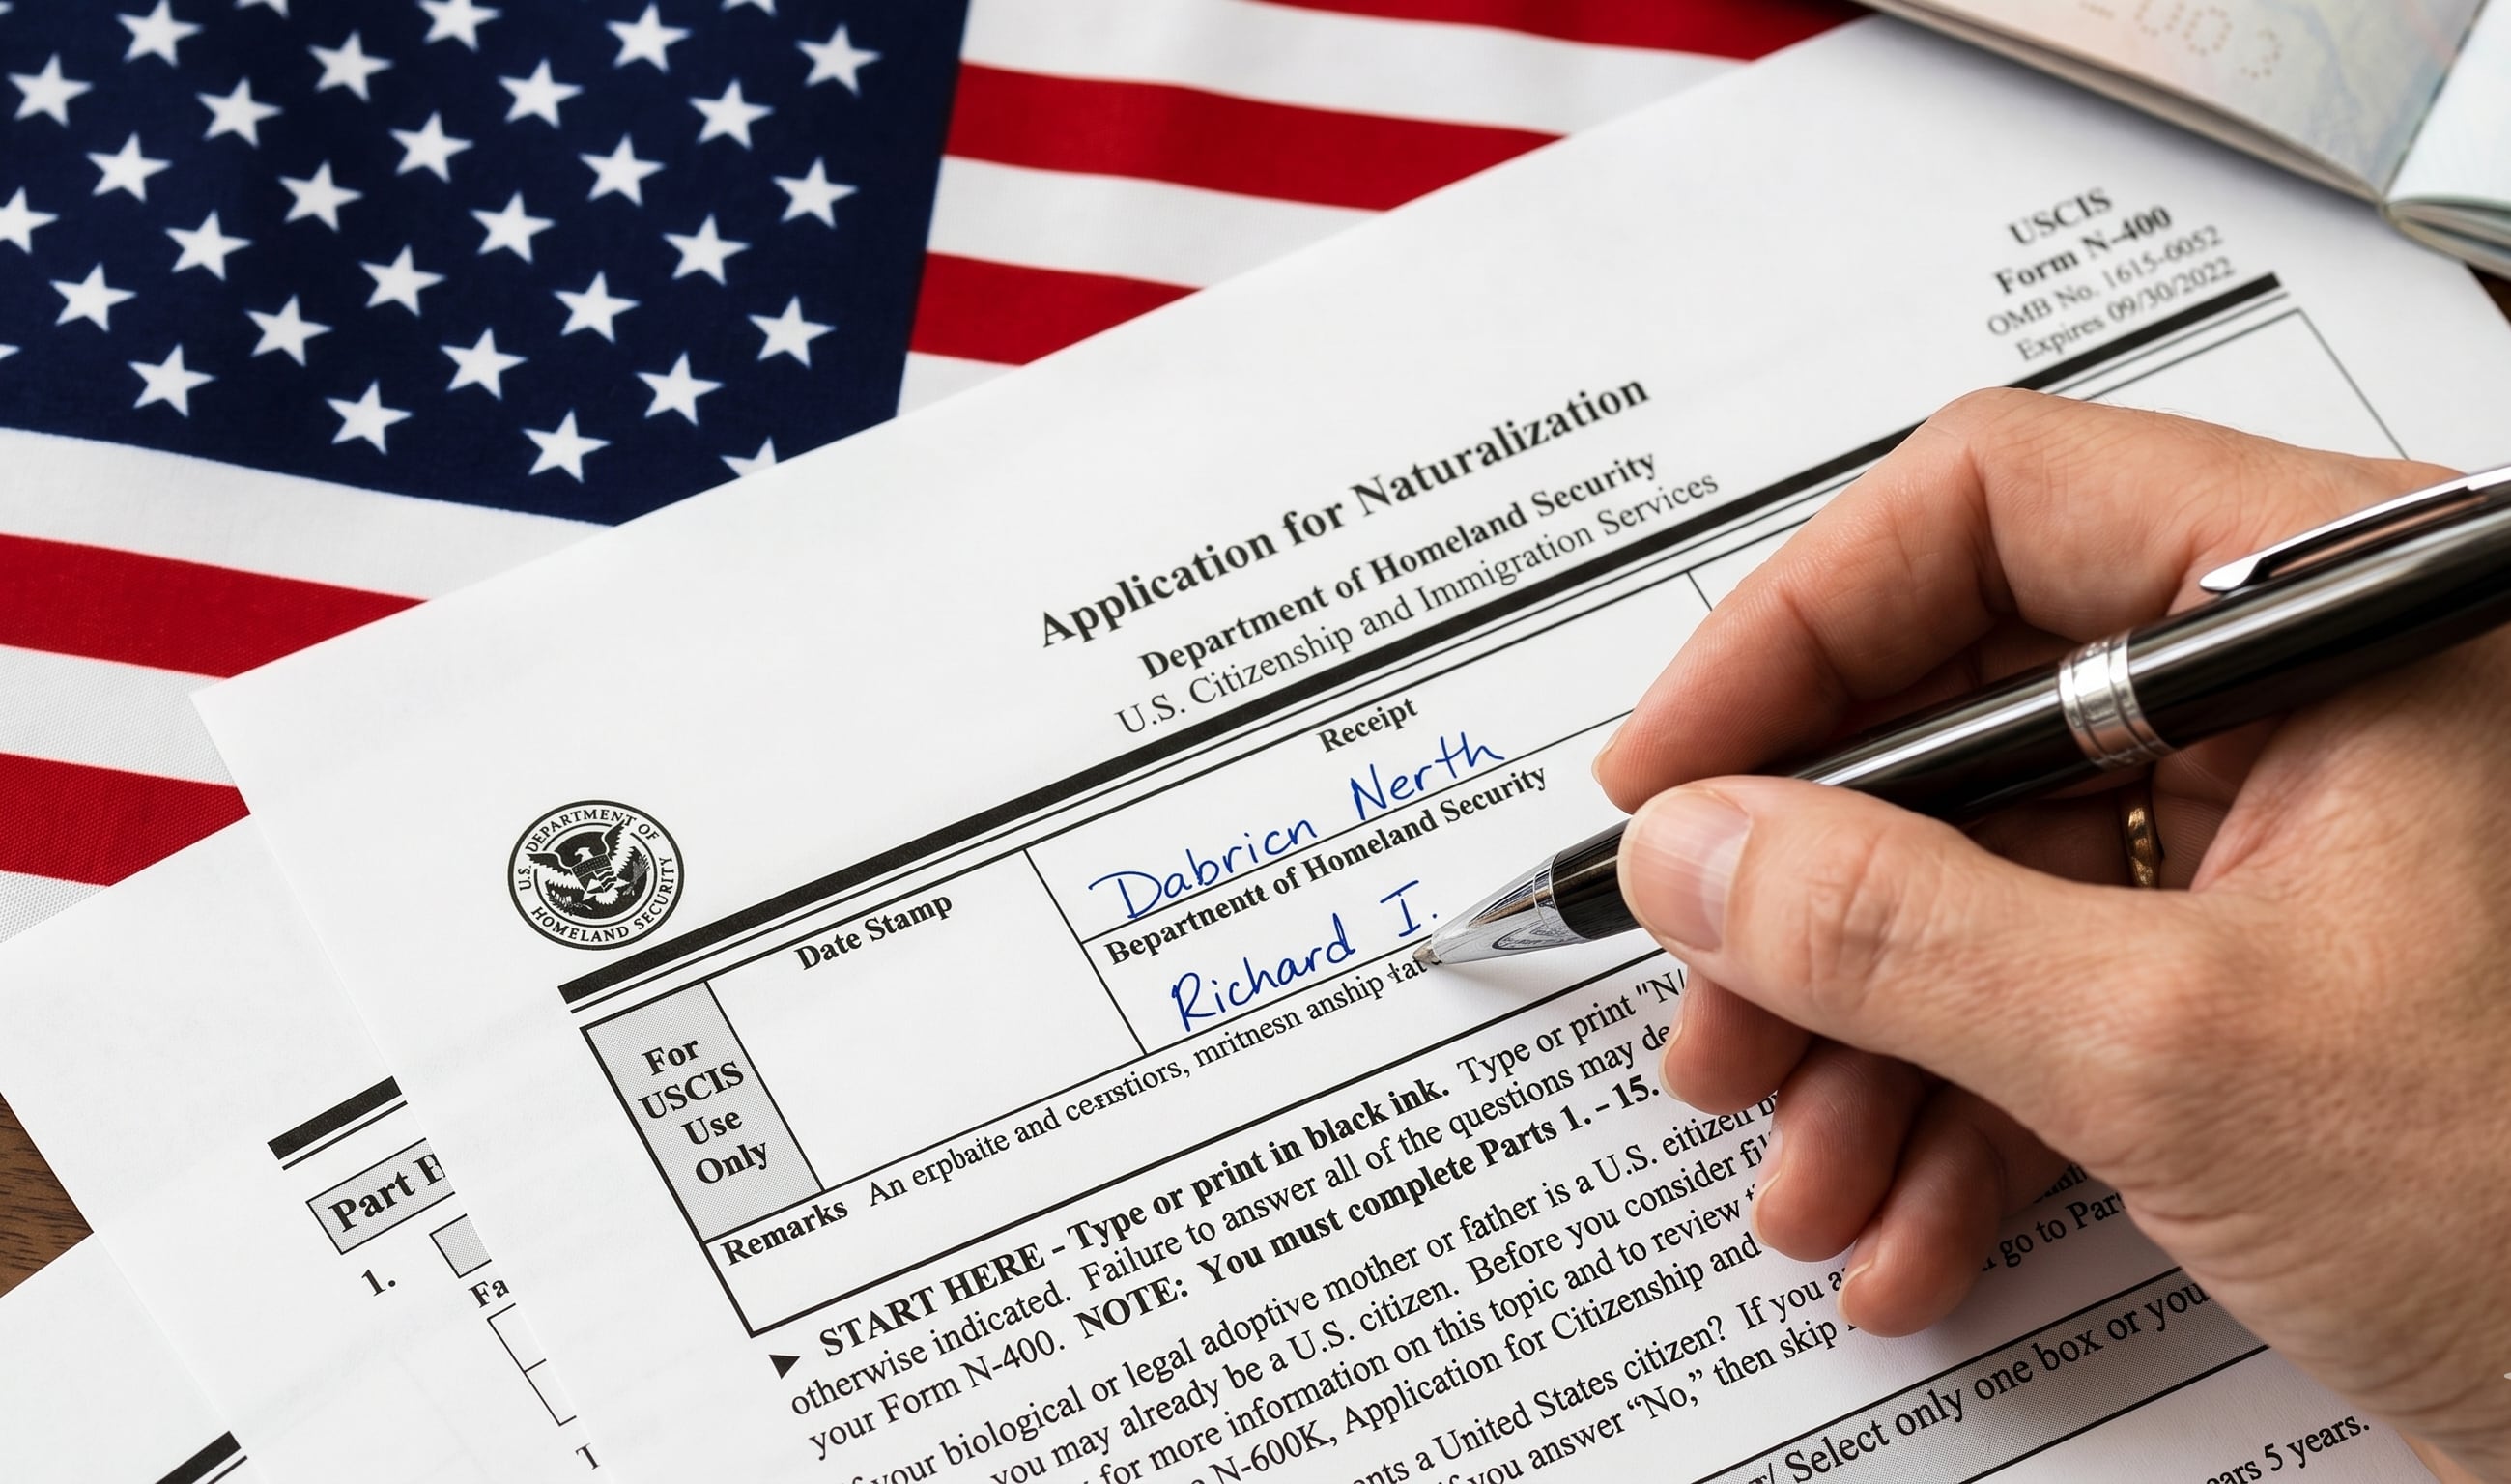 USCIS
Form N-400
OMB No. 1615-0052
Expires 09/30/2022
Application for Naturalization
Department of Homeland Security
U.S. Citizenship and Immigration Services
U.S. DEPARTMENT OF HOMELAND SECURITY
For
USCIS
Use
Only
Date Stamp
Receipt
Dabricn Nerth
Bepartnentt of Homeland Security
Richard I.
Remarks An erpbaite and cerstiors, mritnesn anship
START HERE - Type or print in black ink. Type or print "N/
otherwise indicated. Failure to answer all of the questions may de
your Form N-400. NOTE: You must complete Parts 1. - 15.
your biological or legal adoptive mother or father is a U.S. eitizen
you may already be a U.S. citizen. Before you consider
for more information on this topic and to review
N-600K, Application for Citizenship and
a United States citizen? If you
go to
you answer “No,” then skip
Select only one box or you
5 years.
Part
1.
Fa